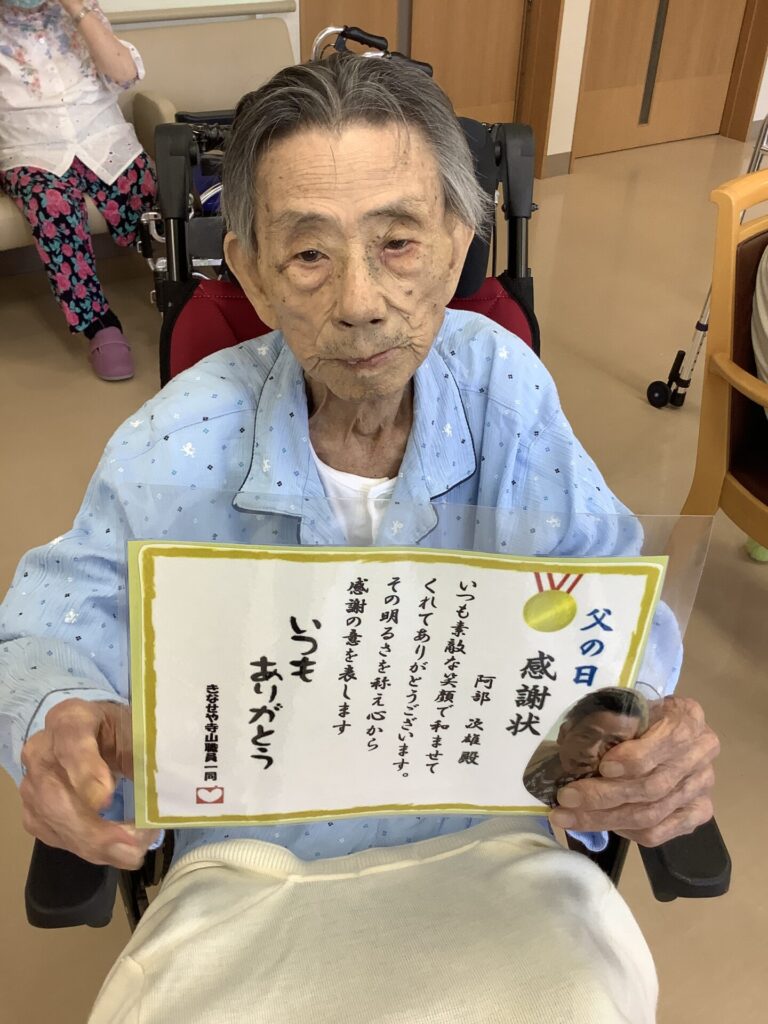 父の日
感謝状
阿部 次雄 殿
いつも素敵な笑顔で和ませて
くれてありがとうございます。
その明るさを称え心から
感謝の意を表します
いつも
ありがとう
きなせや寺山職員一同